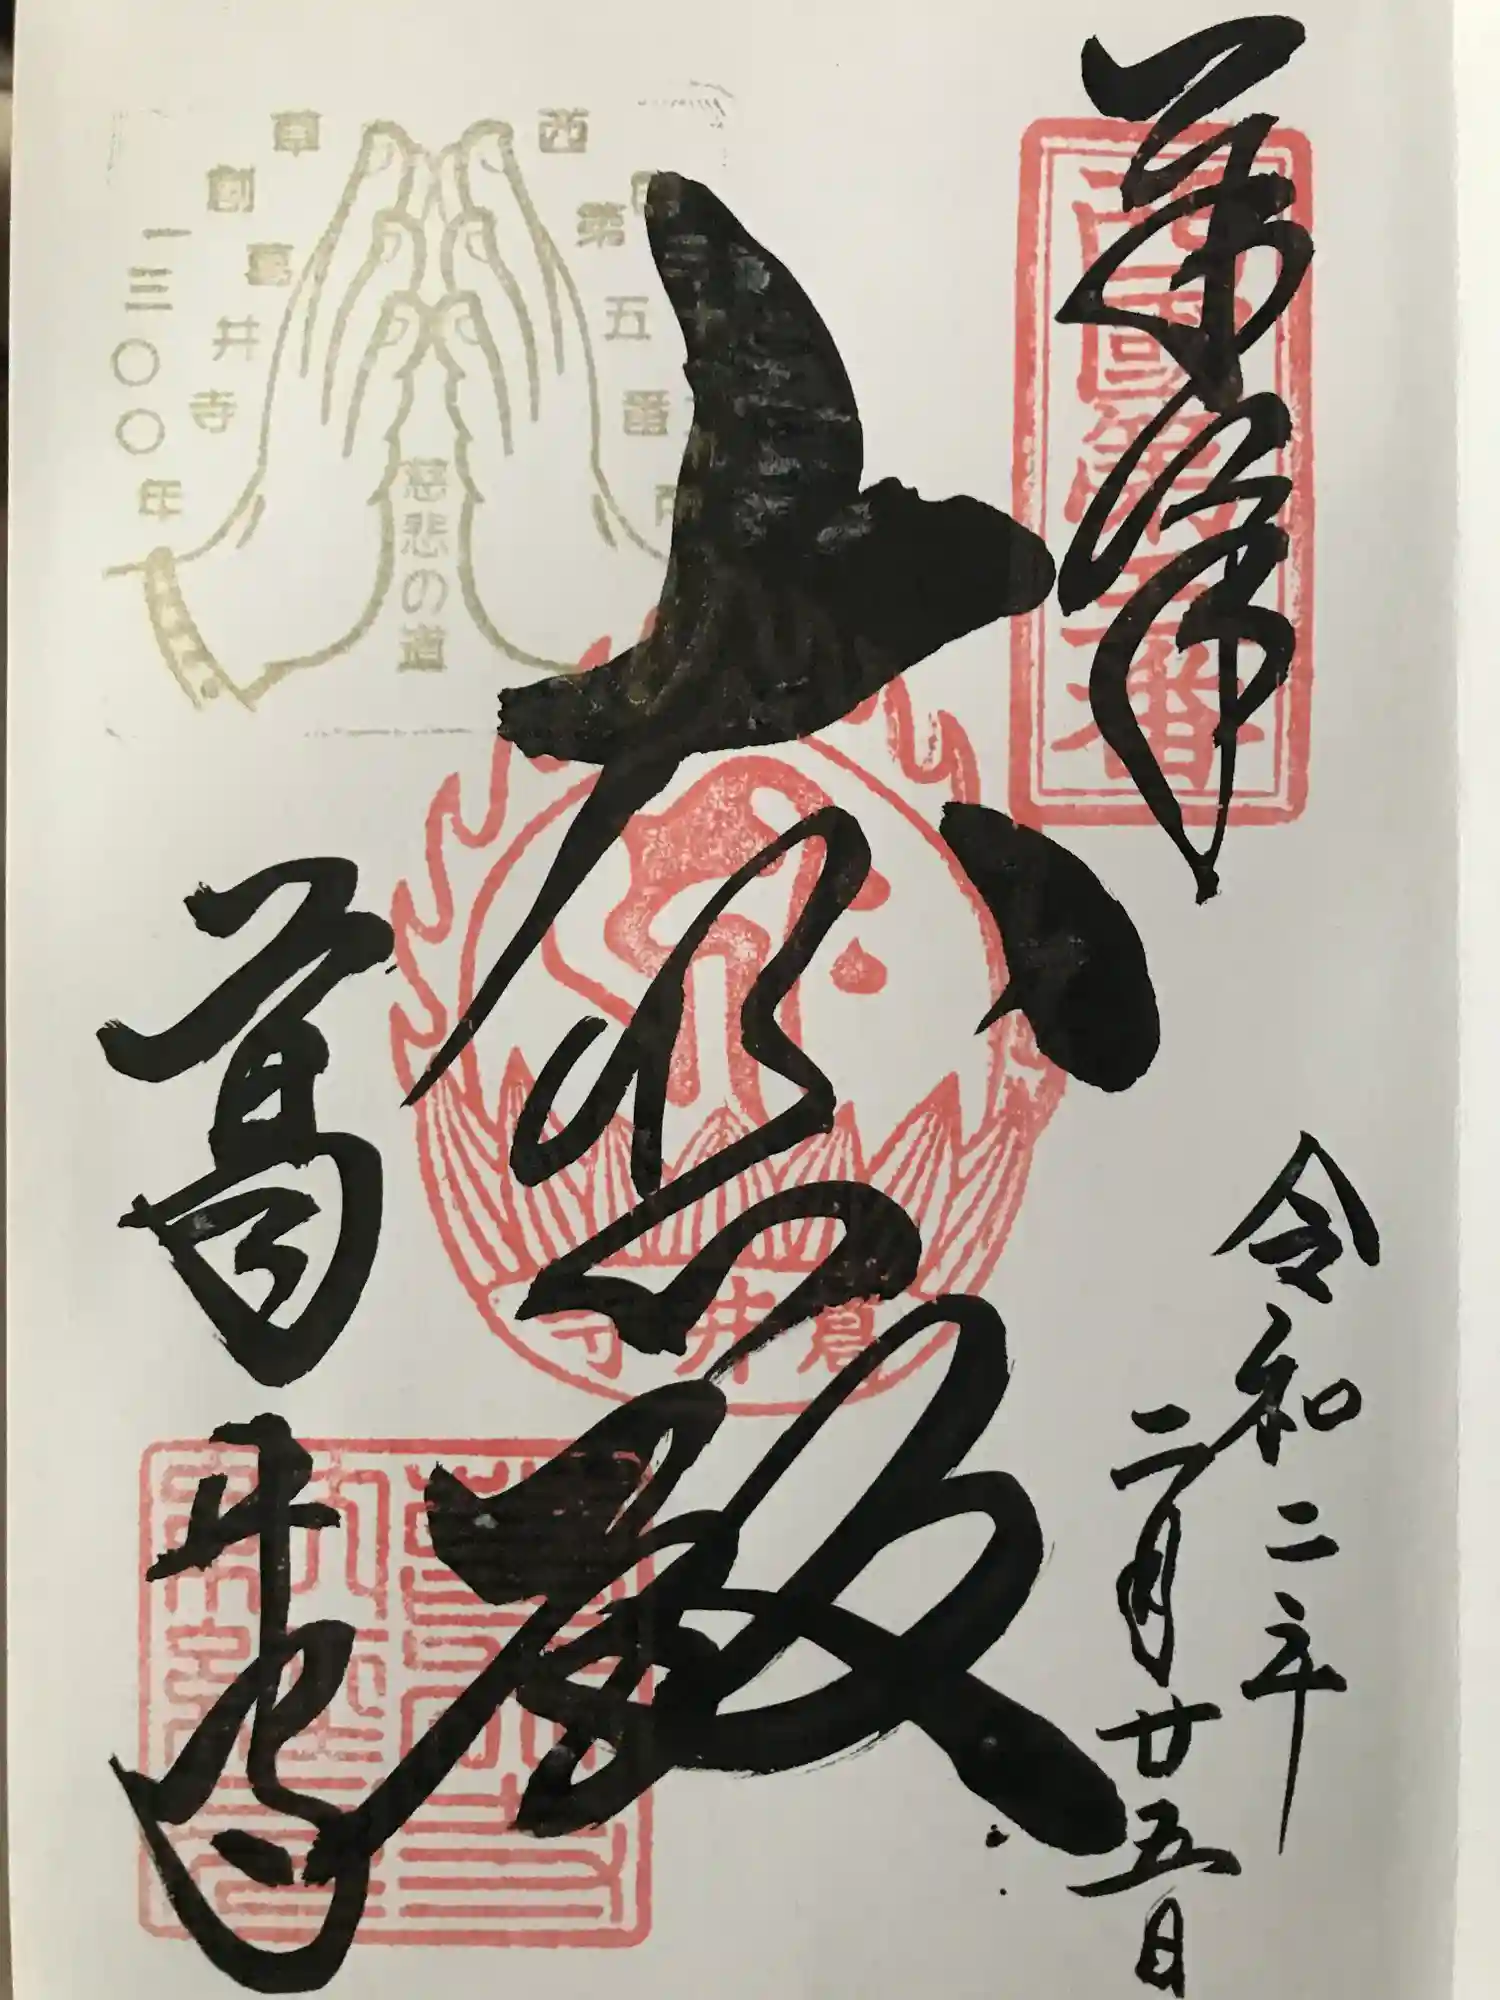 奉拝
西國第五番
令和二年
二月廿五日
大悲殿
葛井寺
葛井寺
西国
第五番
草創
一三〇〇年
葛井寺
慈悲の道